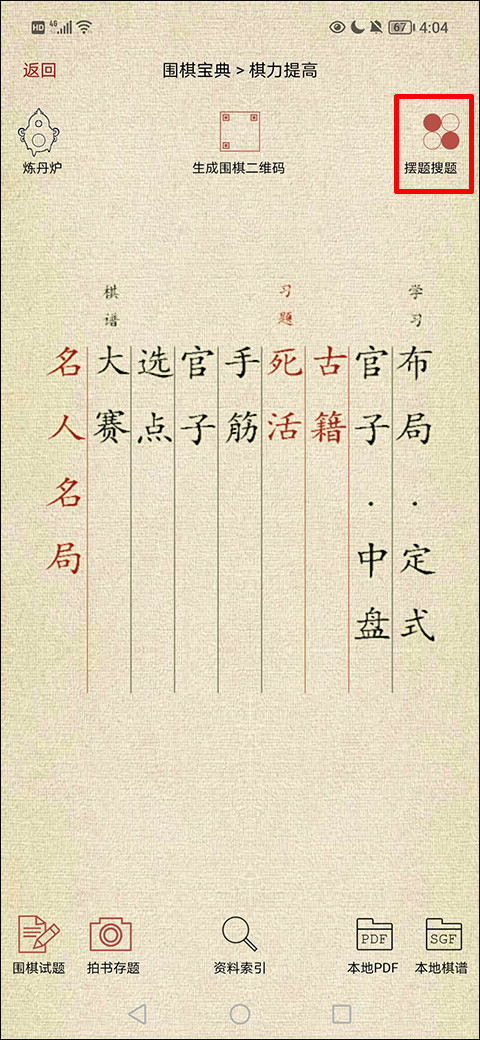 HD 4G 67 4:04
返回 围棋宝典 > 棋力提高
炼丹炉 生成围棋二维码 摆题搜题
学习
布局·定式
官子·中盘
习题
古籍
死活
手筋
官子
选点
棋谱
大赛
名人名局
PDF SGF
围棋试题 拍书存题 资料索引 本地PDF 本地棋谱